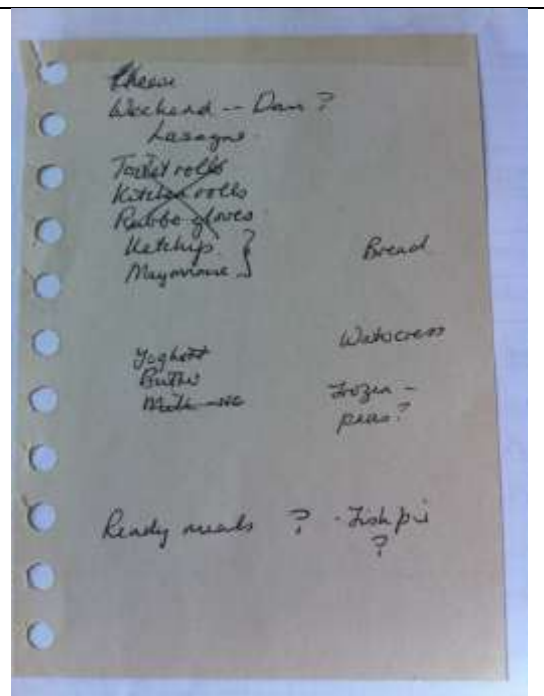 Cheese
Weekend -- Dan ?
Lasagne
Toilet rolls
Kitchen rolls
Rubber gloves
Ketchup }
Mayonnaise
Bread
Watercress
Yoghott
Butter
Milk
Frozen -
peas?
Ready meals ? - Fish pie
?